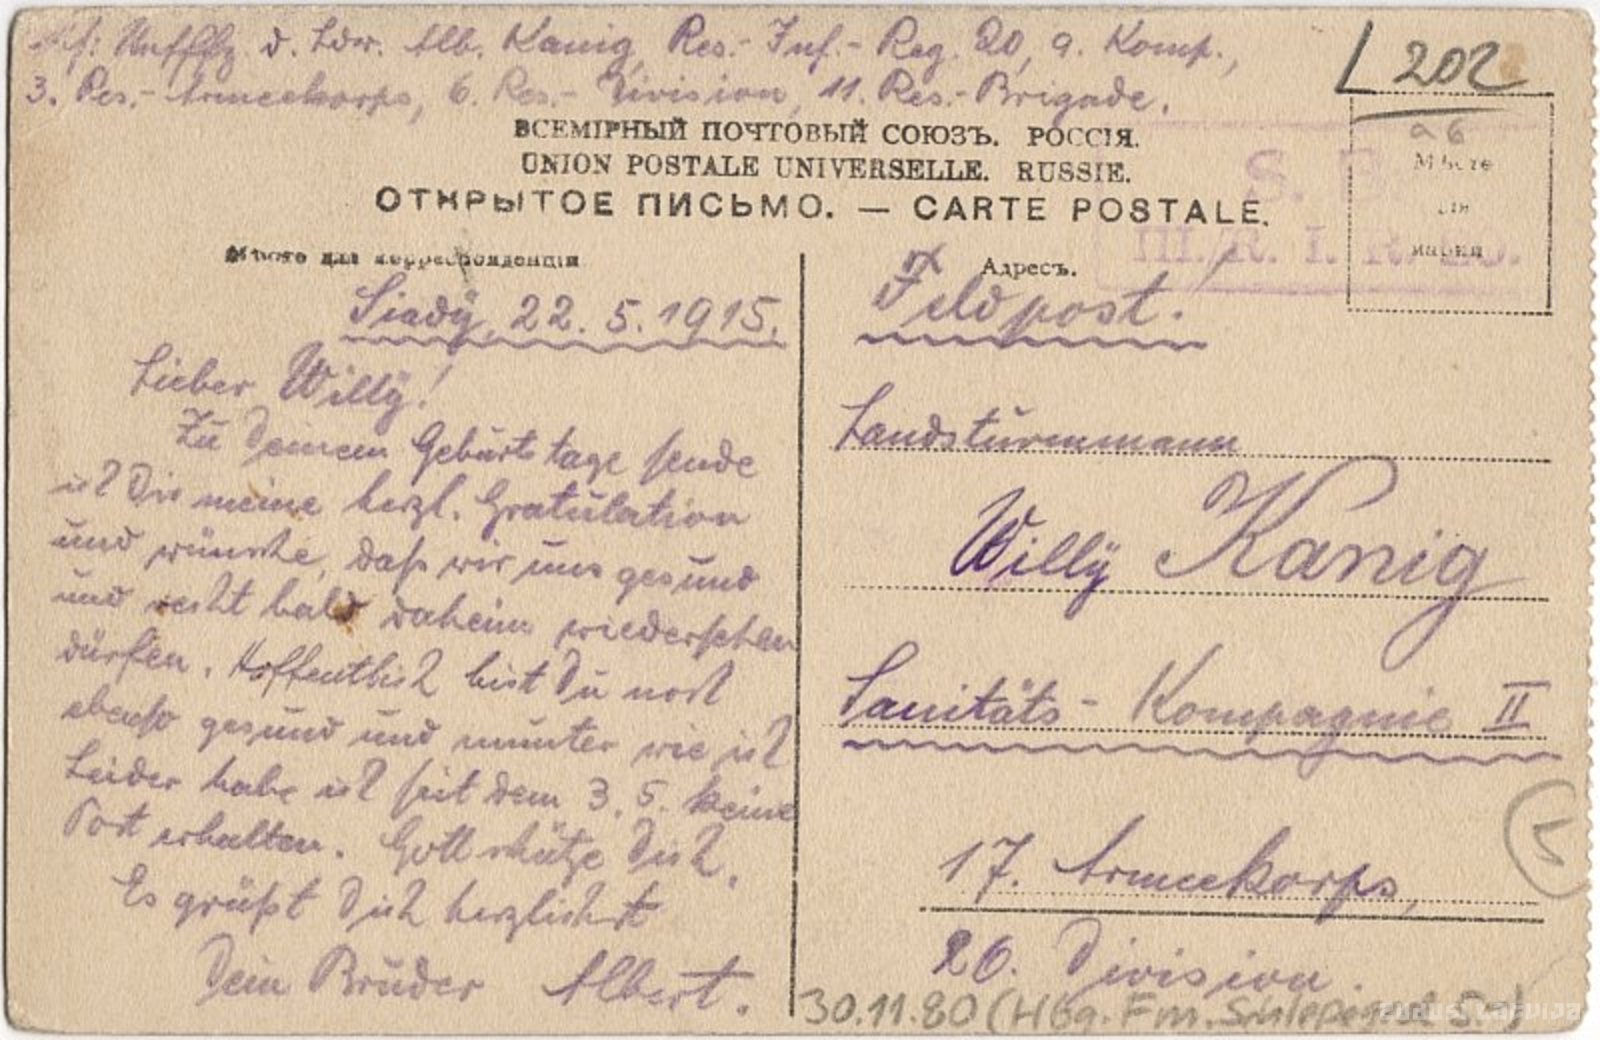 d. Ldw. Alb. Kanig, Res.-Inf.-Reg. 20, 9. Komp.,
3. Res.-Armeekorps, 6. Res.-Division, 11. Res.-Brigade.
202
ВСЕМІРНЫЙ ПОЧТОВЫЙ СОЮЗЪ. РОССІЯ.
UNION POSTALE UNIVERSELLE. RUSSIE.
ОТКРЫТОЕ ПИСЬМО. — CARTE POSTALE.
Мѣсто
для
марки
S. B.
III./R. I. R. 20.
Мѣсто для корреспонденціи
Siady, 22. 5. 1915.
Lieber Willy!
Zu Deinem Geburtstage sende
ich Dir meine herzl. Gratulation
und wünsche, daß wir uns gesund
und recht bald daheim wiedersehen
dürfen. Hoffentlich bist Du noch
ebenso gesund und munter wie ich
Leider habe ich seit dem 3. 5. keine
Post erhalten. Gott schütze Dich.
Es grüßt Dich herzlichst
Dein Bruder Albert.
Адресъ.
Feldpost!
Landsturmmann
Willy Kanig
Sanitäts-Kompagnie II
17. Armeekorps,
26. Division.
5
30.11.80 (Hbg. Fm.